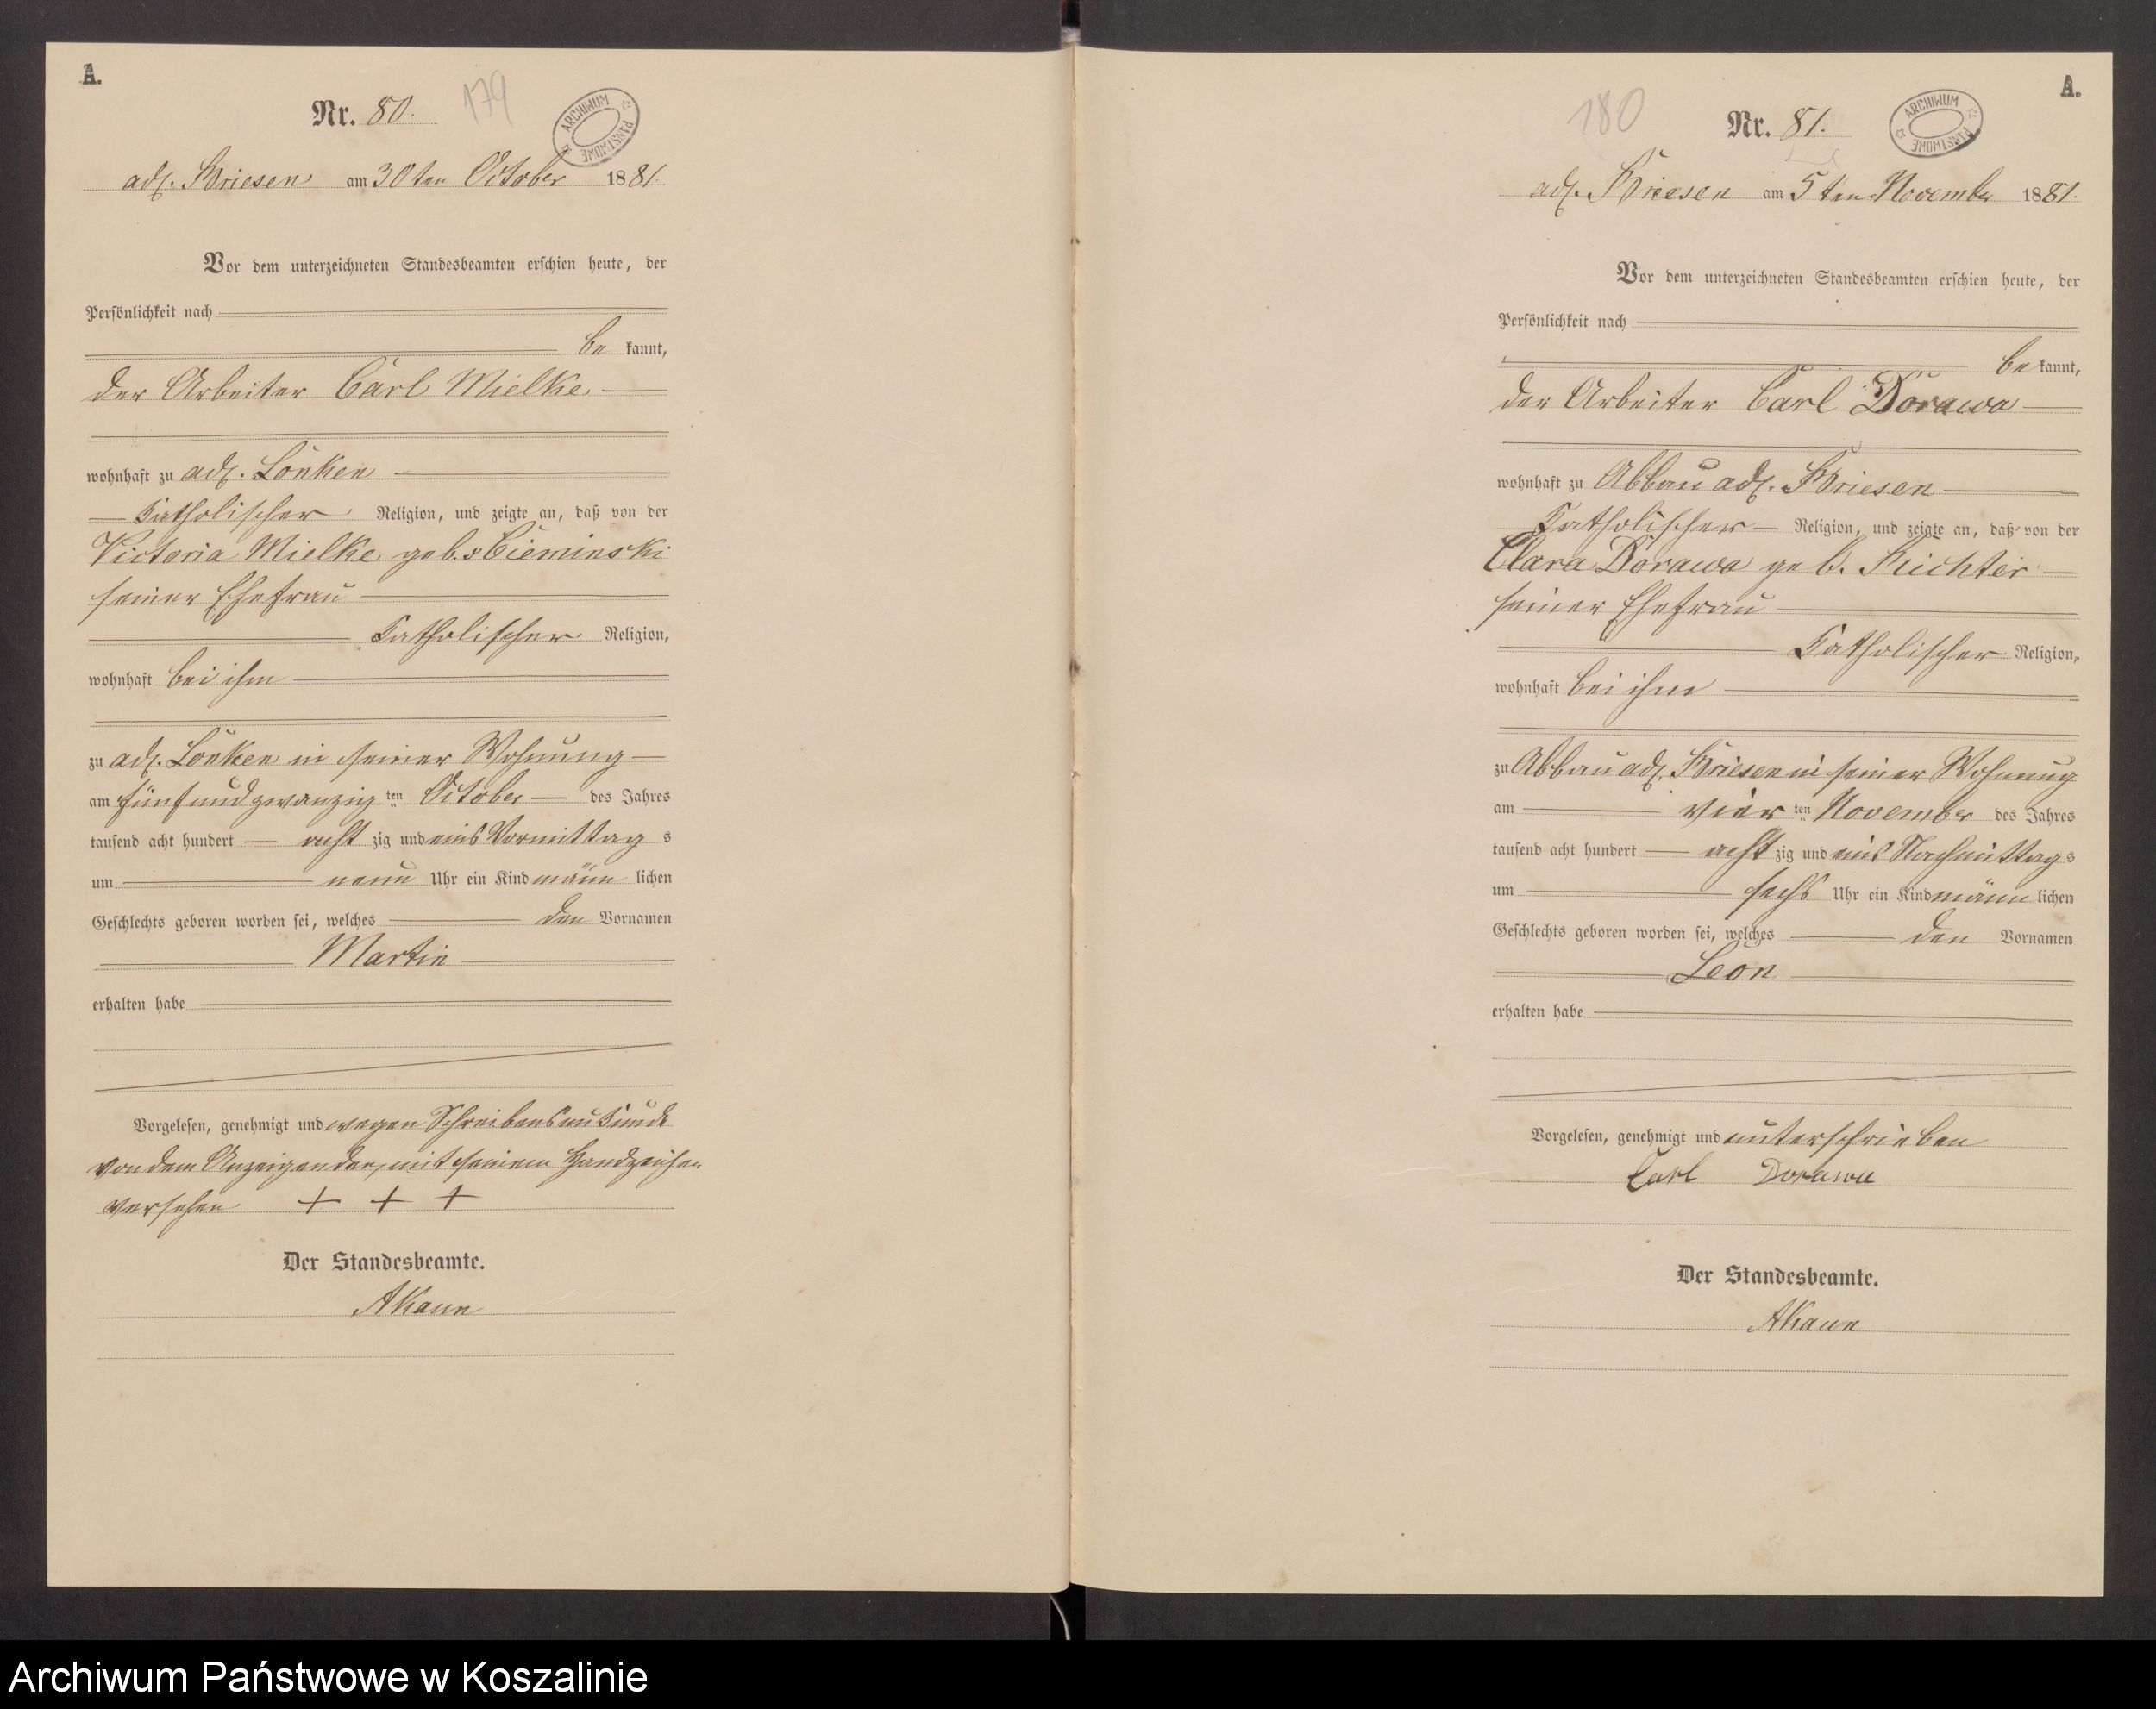 A.
Nr. 80.
179
ARCHIWUM PAŃSTWOWE
adl. Briesen am 30ten October 1881.
Vor dem unterzeichneten Standesbeamten erschien heute, der
Persönlichkeit nach
be kannt,
der Arbeiter Carl Mielke
wohnhaft zu adl. Lonken
Katholischer Religion, und zeigte an, daß von der
Victoria Mielke geb. v Cieminski
seiner Ehefrau
Katholischer Religion,
wohnhaft bei ihm
zu adl. Lonken in seiner Wohnung
am fünf und zwanzig ten October des Jahres
tausend acht hundert acht zig und eins Vormittag s
um neun Uhr ein Kind männ lichen
Geschlechts geboren worden sei, welches den Vornamen
Martin
erhalten habe
Vorgelesen, genehmigt und wegen Schreibensunkunde
von dem Anzeigenden mit seinem Handzeichen
versehen + + +
Der Standesbeamte.
AKaun
A.
180
Nr. 81.
ARCHIWUM PAŃSTWOWE
adl. Briesen am 5ten November 1881.
Vor dem unterzeichneten Standesbeamten erschien heute, der
Persönlichkeit nach
be kannt,
der Arbeiter Carl Dorawa
wohnhaft zu Abbau adl. Briesen
Katholischer Religion, und zeigte an, daß von der
Clara Dorawa geb. Richter
seiner Ehefrau
Katholischer Religion,
wohnhaft bei ihm
zu Abbau adl. Briesen in seiner Wohnung
am vier ten November des Jahres
tausend acht hundert acht zig und eins Nachmittag s
um sechs Uhr ein Kind männ lichen
Geschlechts geboren worden sei, welches den Vornamen
Leon
erhalten habe
Vorgelesen, genehmigt und unterschrieben
Carl Dorawa
Der Standesbeamte.
AKaun
Archiwum Państwowe w Koszalinie